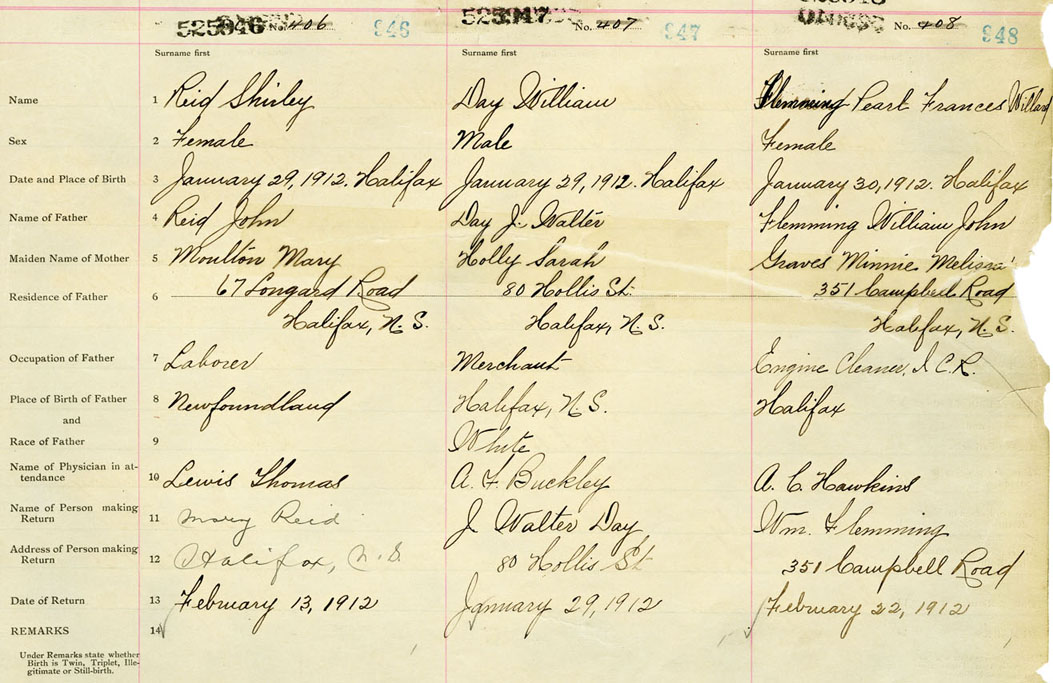 525946 No. 406 946 525947 No. 407 947 No. 408 948
Surname first Surname first Surname first
Name 1 Reid Shirley Day William Flemming Pearl Frances Willard
Sex 2 Female Male Female
Date and Place of Birth 3 January 29, 1912. Halifax January 29, 1912. Halifax January 30, 1912. Halifax
Name of Father 4 Reid John Day J. Walter Flemming William John
Maiden Name of Mother 5 Moulton Mary Holly Sarah Graves Minnie Melissa
Residence of Father 6 67 Longard Road 80 Hollis St. 351 Campbell Road
Halifax, N.S. Halifax, N.S. Halifax, N.S.
Occupation of Father 7 Laborer Merchant Engine Cleaner, I.C.R.
Place of Birth of Father 8 Newfoundland Halifax, N.S. Halifax
and
Race of Father 9 White
Name of Physician in at-
tendance 10 Lewis Thomas A. F. Buckley A. C. Hawkins
Name of Person making
Return 11 Mary Reid J Walter Day Wm. Flemming
Address of Person making
Return 12 Halifax, N.S. 80 Hollis St 351 Campbell Road
Date of Return 13 February 13, 1912 January 29, 1912 February 22, 1912
REMARKS 14
Under Remarks state whether
Birth is Twin, Triplet, Ille-
gitimate or Still-birth.